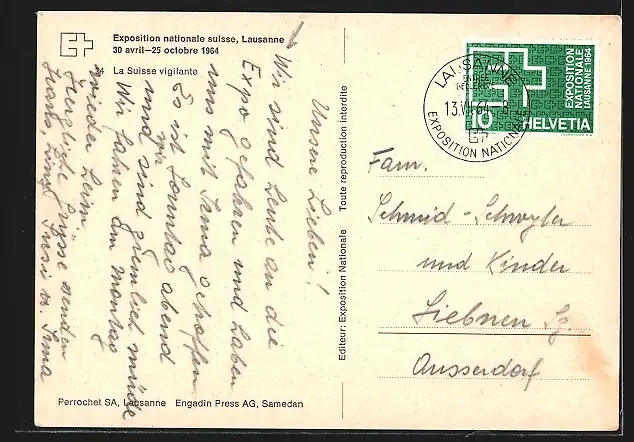 Exposition nationale suisse, Lausanne
30 avril–25 octobre 1964
24 La Suisse vigilante
Unsere Lieben!
Wir sind heute an die
Expo gefahren und haben
uns mit Irma getroffen
Es ist Sonntag abend
und wir sind ziemlich müde
Wir fahren am Montag
wieder heim.
Herzliche Grüsse senden
Hans, Susi u. Irma
Editeur: Exposition Nationale Toute reproduction interdite
Perrochet SA, Lausanne Engadin Press AG, Samedan
LAUSANNE
13.VII.64.-8
EXPOSITION NATIONALE
EXPOSITION
NATIONALE
LAUSANNE 1964
10 HELVETIA
Fam.
Schmid-Schwyter
und Kinder
Siebnen Sz.
Ausserdorf